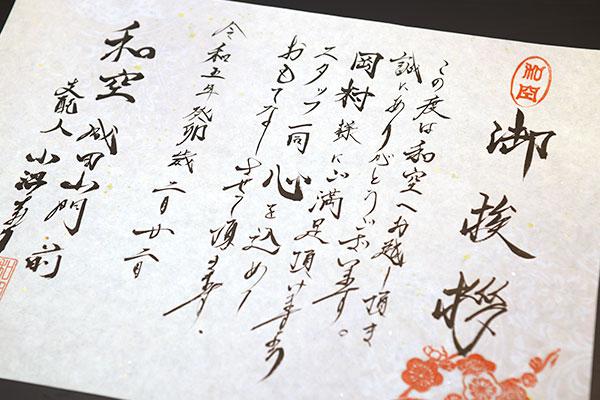 御挨拶
この度は和空へお越し頂き
誠にありがとうございます。
岡村様に御満足頂けますよう
スタッフ一同心を込めて
おもてなしさせて頂きます。
令和五年 癸卯歳 二月廿六日
和空 成田山門前
支配人 小沼